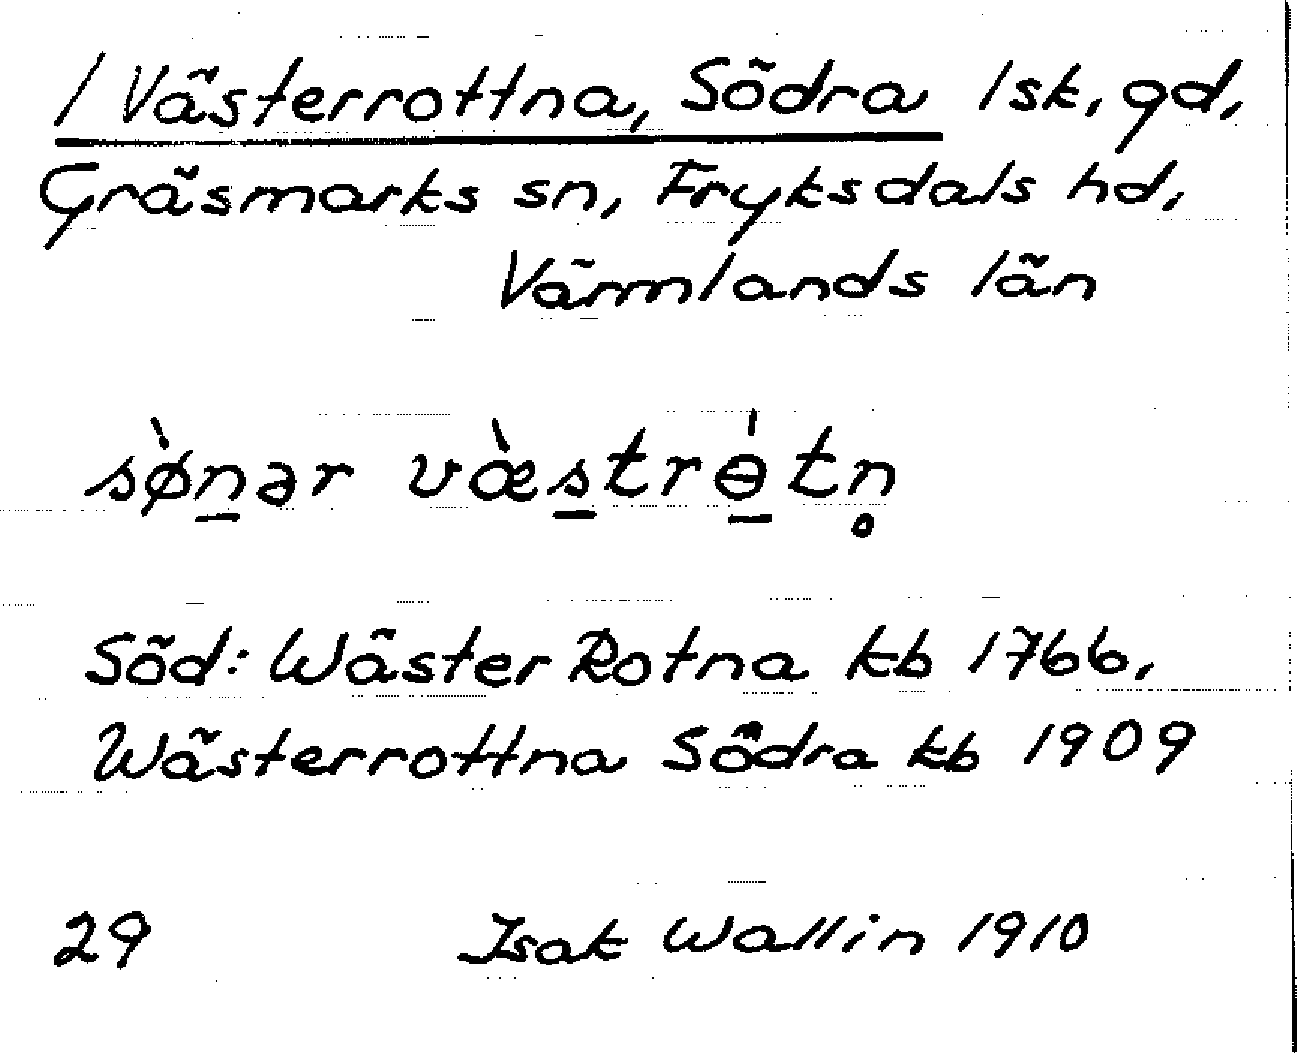 / Västerrottna, Södra lsk, gd,
Gräsmarks sn, Fryksdals hd,
Värmlands län
sø̀n̠ər væ̀s̠trɵ̠̍tn̥
Söd: Wäster Rotna kb 1766,
Wästerrottna Södra kb 1909
29 Isak Wallin 1910